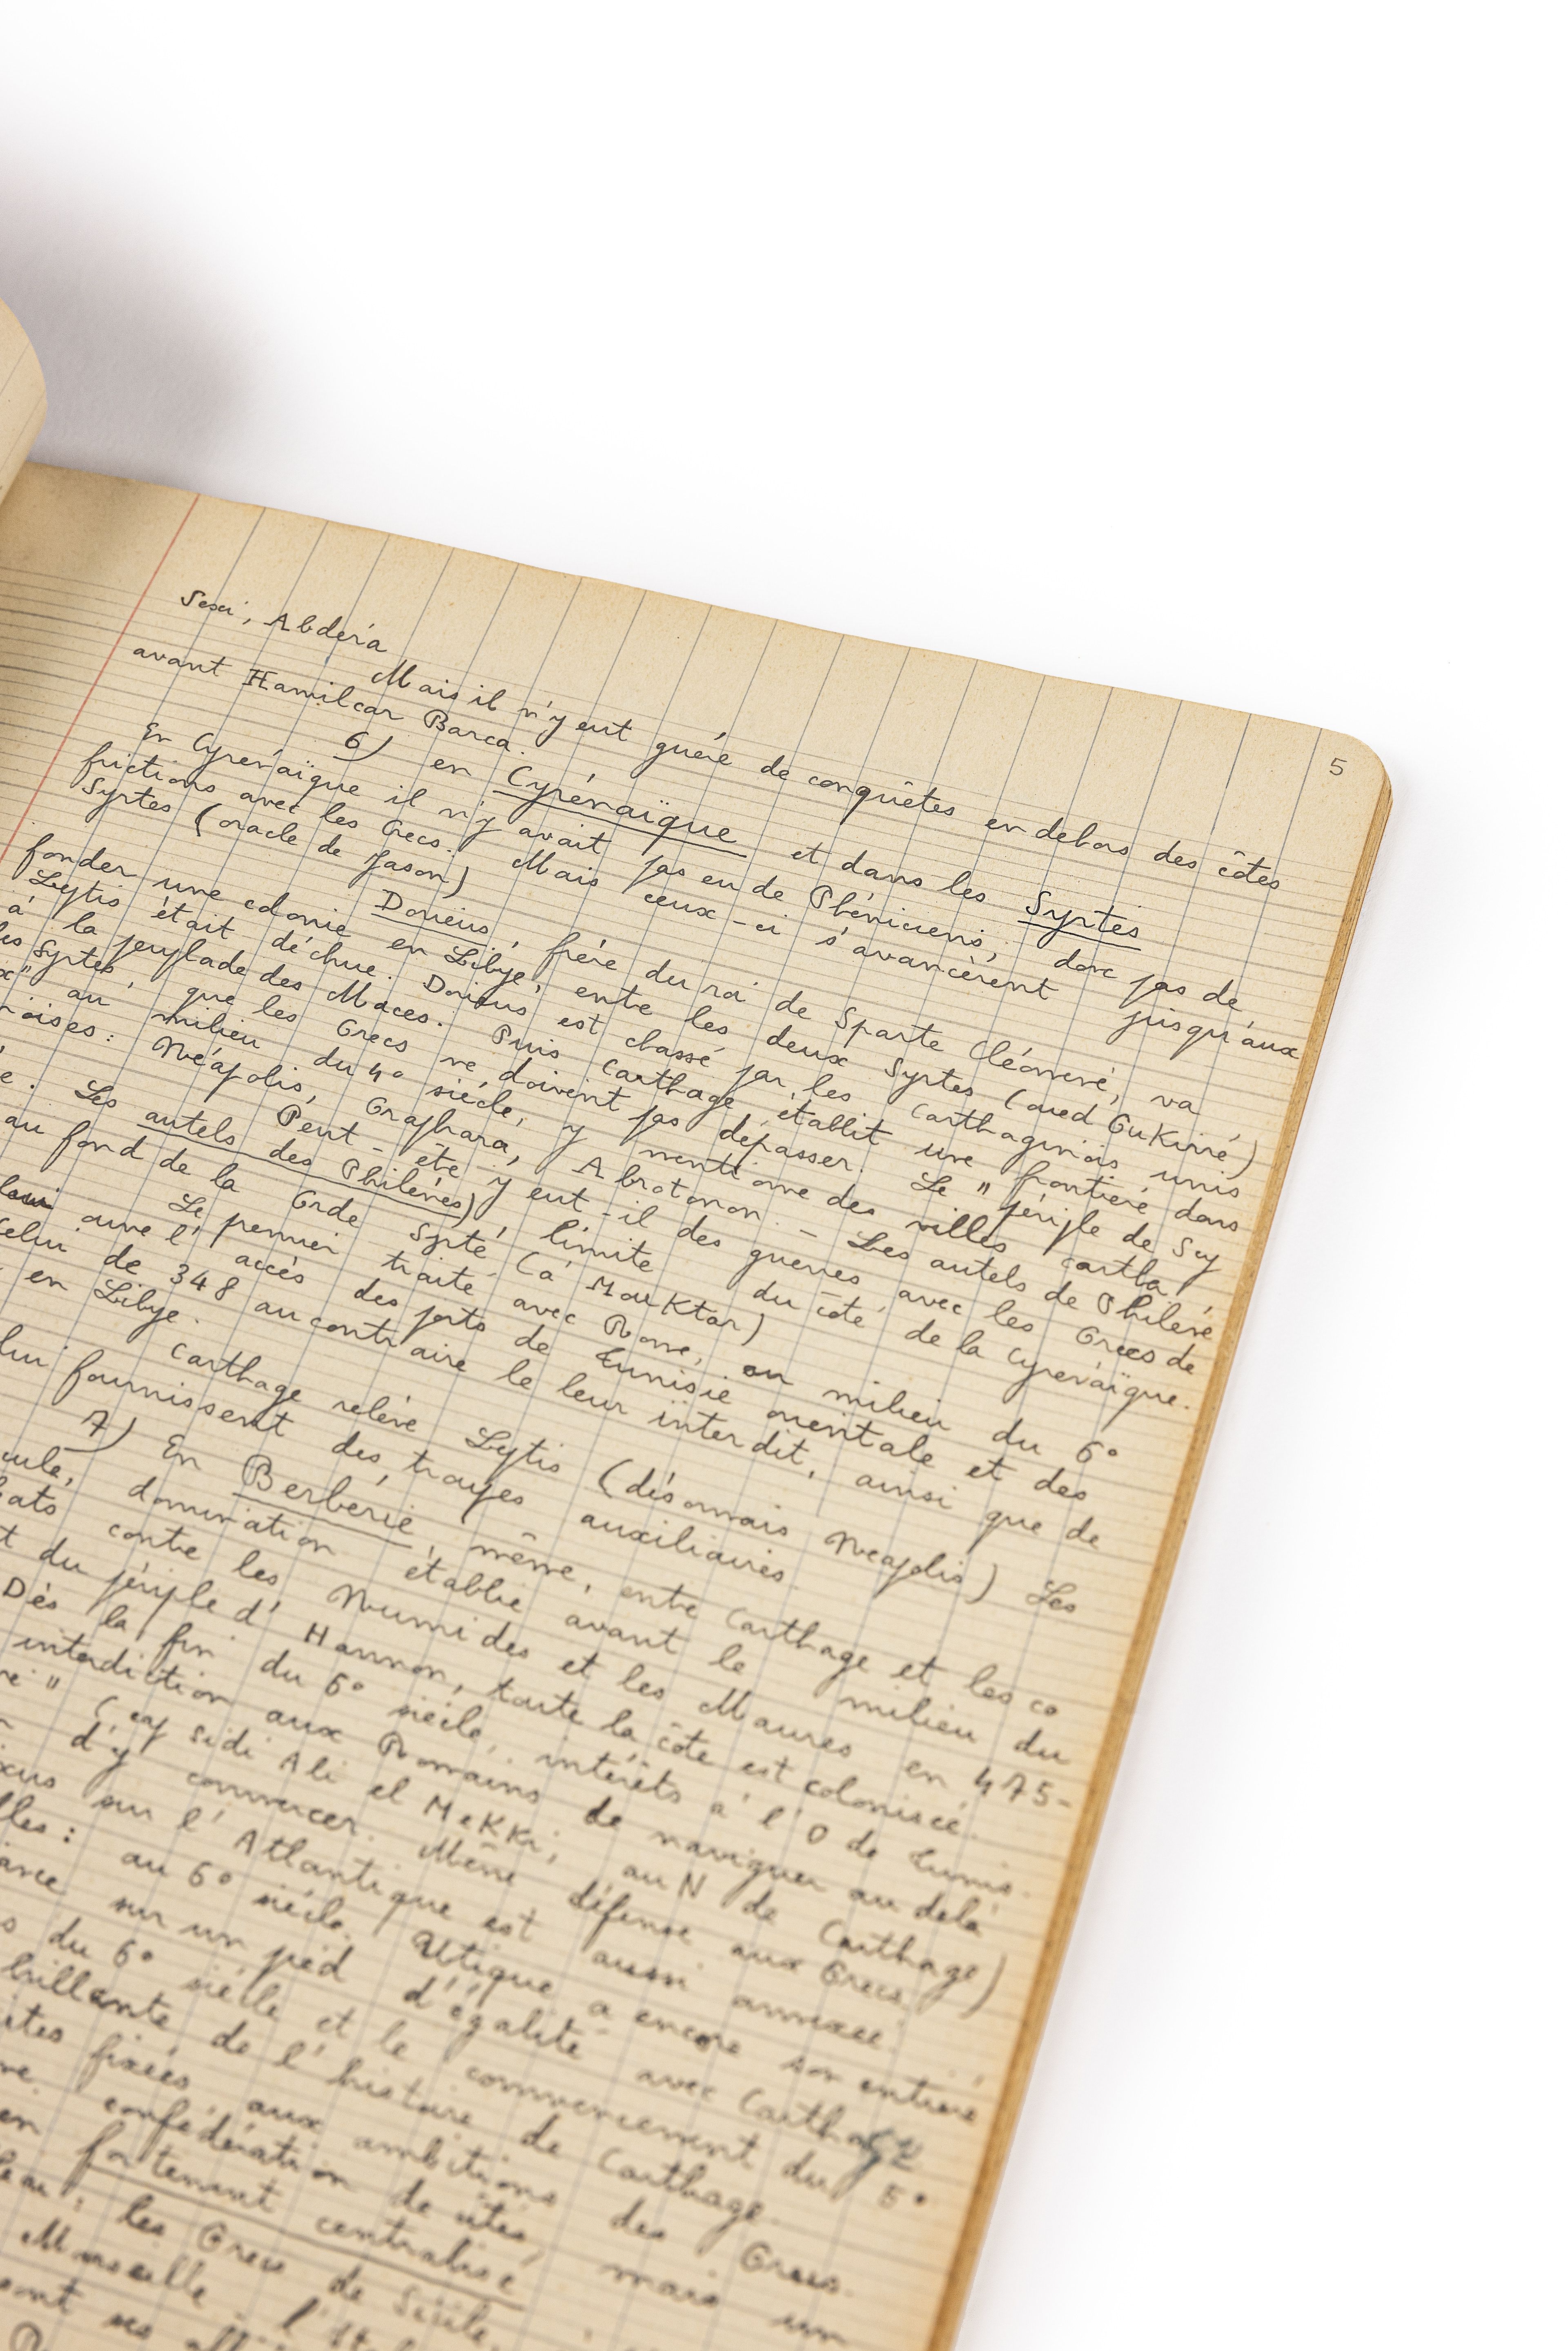 5
Sexi, Abdéra
Mais il n'y eut guère de conquêtes en dehors des côtes
avant Hamilcar Barca.
6) en Cyrénaïque et dans les Syrtes
En Cyrénaïque il n'y avait pas eu de Phéniciens, donc pas de
frictions avec les Grecs. Mais ceux-ci s'avancèrent jusqu'aux
Syrtes (oracle de Jason)
Dorieus, frère du roi de Sparte Cléomène, va
fonder une colonie en Libye, entre les deux Syrtes (oued Oukirré)
Leptis était déchue. Dorieus est chassé par les Carthaginois unis
à la peuplade des Maces. Puis Carthage établit une frontière dans
les Syrtes, que les Grecs ne doivent pas dépasser. Le "périple de Scy
x" au milieu du 4° siècle, y mentionne des villes cartha
noises: Néapolis, Graphara, Abrotonon. - Les autels de Philène
e. Peut-être y eut-il des guerres avec les Grecs de
Les autels des Philènes), limite du côté de la Cyrénaïque.
au fond de la Grde Syrte (à Mouktar)
Le premier traité avec Rome, au milieu du 6°
ouvre l'accès des ports de Tunisie orientale et des
celui de 348 au contraire le leur interdit, ainsi que de
en Libye.
Carthage relève Leptis (désormais Néapolis) Les
lui fournissent des troupes auxiliaires.
7) En Berbérie même, entre Carthage et les co
cule, domination établie avant le milieu du
bats contre les Numides et les Maures en 475-
t du périple d'Hannon, toute la côte est colonisée.
Dès la fin du 6° siècle, intérêts à l'O de Tunis.
interdiction aux Romains de naviguer au delà
" (cap Sidi Ali el MeKKi, au N de Carthage)
d'y commercer. Même défense aux Grecs
xus sur l'Atlantique est aussi annexée.
lles: au 6° siècle. Utique a encore son entière
ance sur un pied d'égalité avec Carthage
s du 6° siècle et le commencement du 5°
brillante de l'histoire de Carthage.
ites fixées aux ambitions des Grecs.
confédération de cités, mais un
en fortement centralisé
les Grecs de Sicile,
Marseille
sont ses